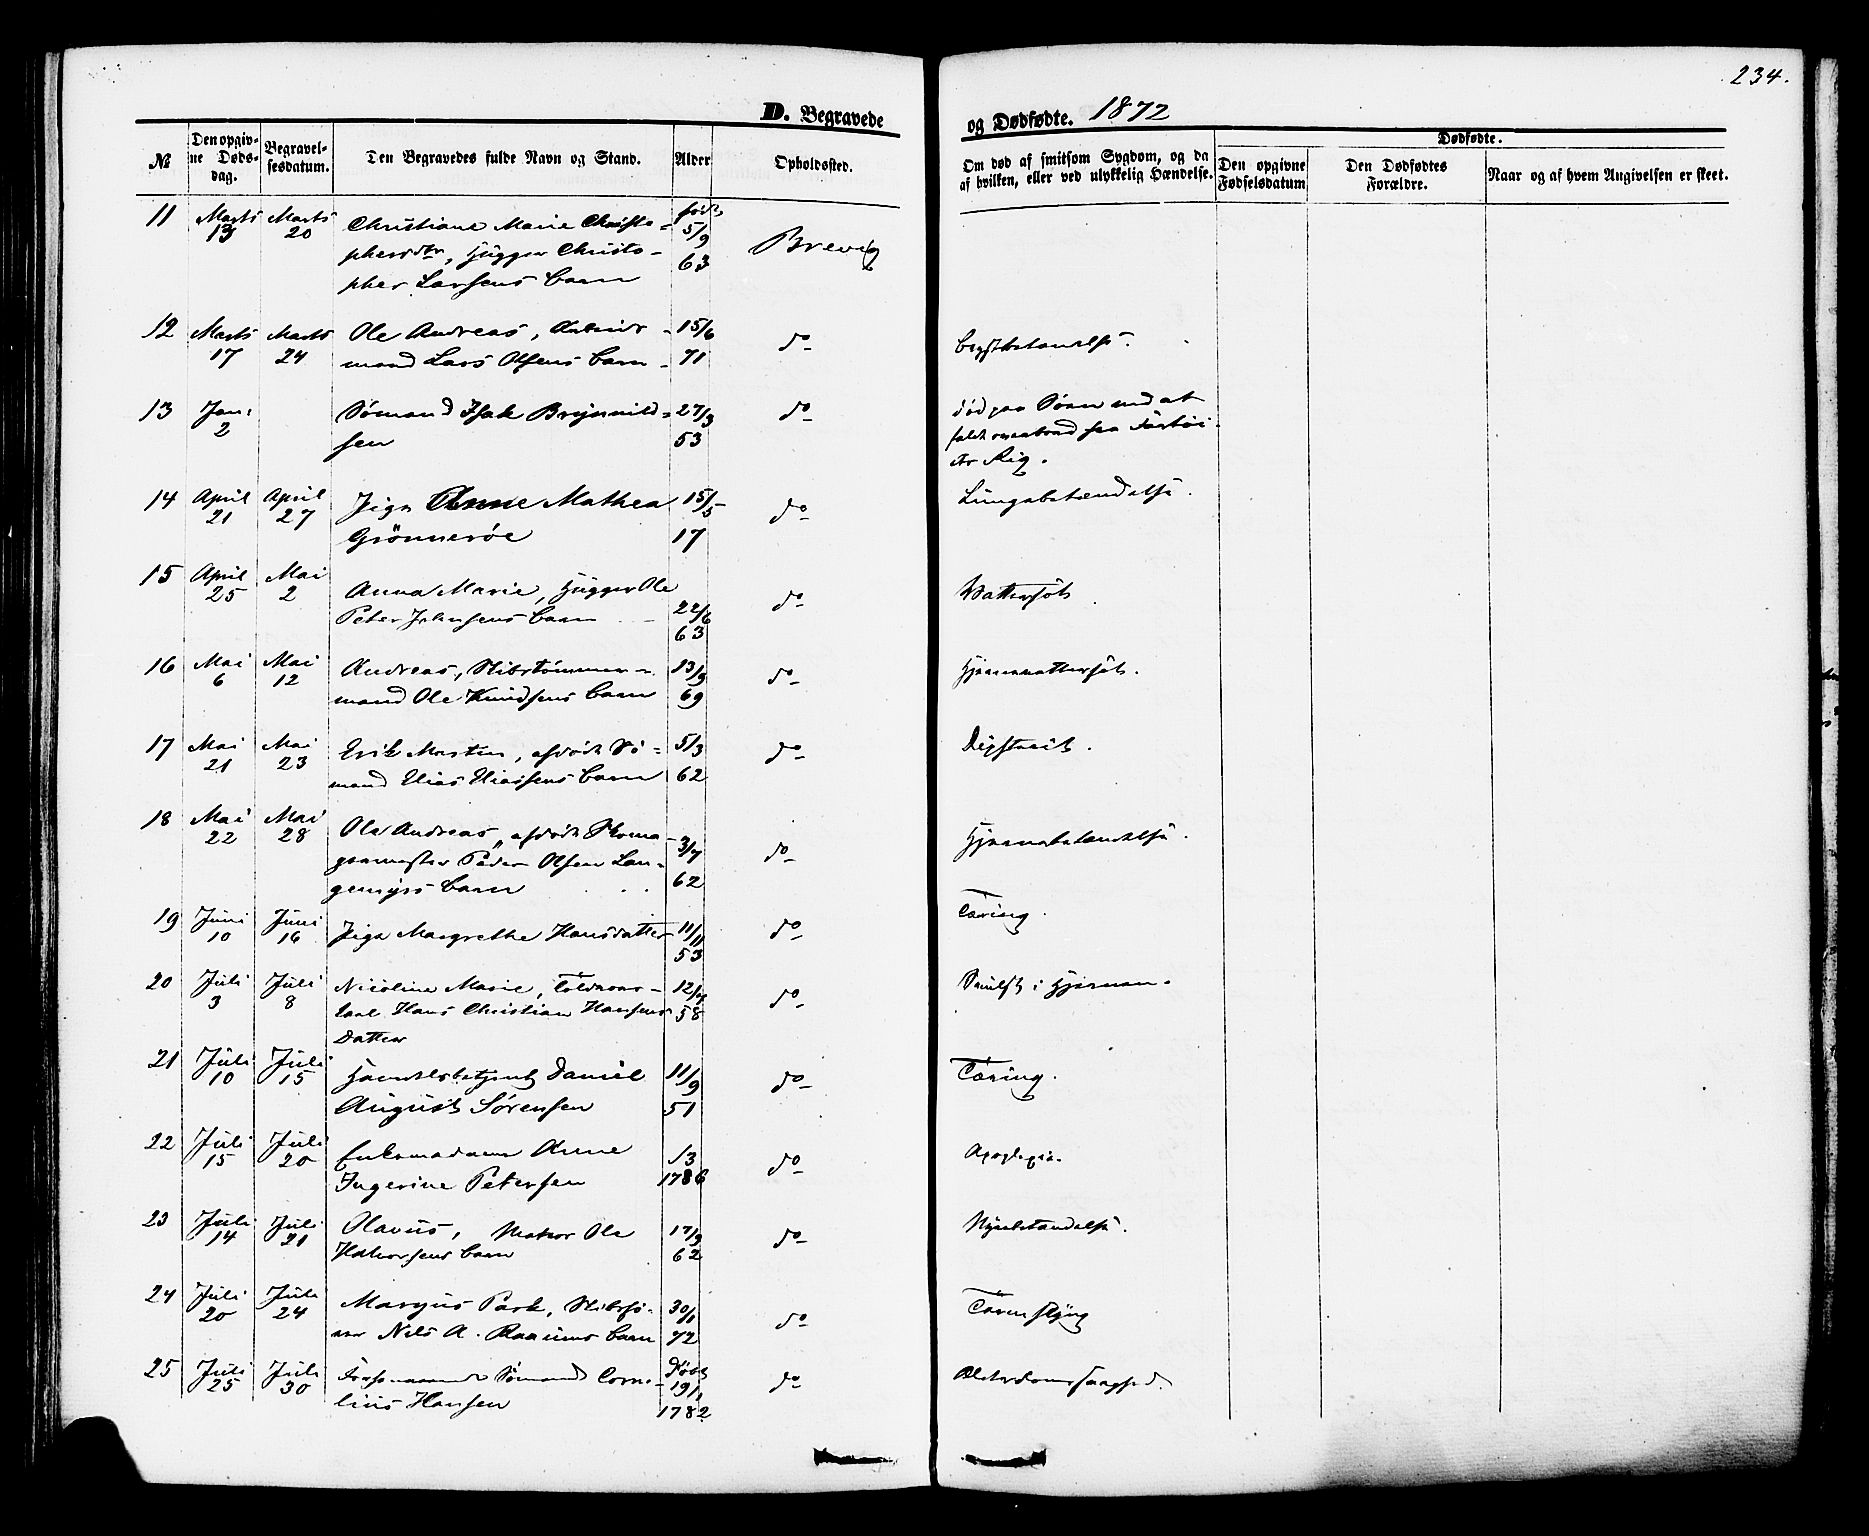 234.
D. Begravede og Dødfødte. 1872
№
Den opgivne Dødsdag.
Begravelsesdatum.
Den Begravedes fulde Navn og Stand.
Alder
Opholdssted.
Om død af smitsom Sygdom, og da af hvilken, eller ved ulykkelig Hændelse.
Dødfødte.
Den opgivne Fødselsdatum
Den Dødfødtes Forældre.
Naar og af hvem Angivelsen er skeet.
11 Marts 13 Marts 20 Christiane Marie Christo- født 5/9 63 Brevig
phersdtr, Hugger Christo-
pher Larsens Barn
12 Marts 17 Marts 24 Ole Andreas, Arbeids- 15/6 71 do Brystbetændelse.
mand Lars Olsens Barn
13 Jan: 2 Sømand Isak Brynnild- 27/3 53 do død paa Søen ved at
sen falde overbord fra Fartøi-
14 April 21 April 27 Pige Anne Mathea 15/5 17 do Lungebetændelse.
Grönneröe
15 April 25 Mai 2 Anna Marie, Hugger Ole 22/6 63 do Vattersot
Peter Johnsens Barn
16 Mai 6 Mai 12 Andreas, Skibstømmer- 13/9 69 do Hjernevattersot.
mand Ole Knudsens Barn
17 Mai 21 Mai 23 Erik Martin, afdøde Sø- 5/3 62 do
mand Elias Eliassens Barn
18 Mai 22 Mai 28 Ole Andreas, afdøde Skoma- 3/7 62 do Hjernebetændelse.
germester Peder Olsen Lan-
gemyrs Barn
19 Juni 10 Juni 16 Pige Margrethe Hansdatter 11/11 53 do Tæring.
20 Juli 3 Juli 8 Nicoline Marie, Toldroer- 12/7 58 do Svulst i Hjernen.
karl Hans Christian Hansens
Datter
21 Juli 10 Juli 15 Handelsbetjent Daniel 11/9 51 do Tæring.
August Sørensen
22 Juli 15 Juli 20 Enkemadame Anne 1786 do Apoplexia.
Ingerine Petersen
23 Juli 14 Juli 21 Olavus, Matros Ole 17/9 62 do Nyrebetændelse.
Halvorsens Barn
24 Juli 20 Juli 24 Margus Park, Skibsfø- 30/1 72 do
rer Nils A. Raaums Barn
25 Juli 25 Juli 30 Sømand Corne- Døbt 19/1 1782 do Alderdomssvaghed.
lius Hansen